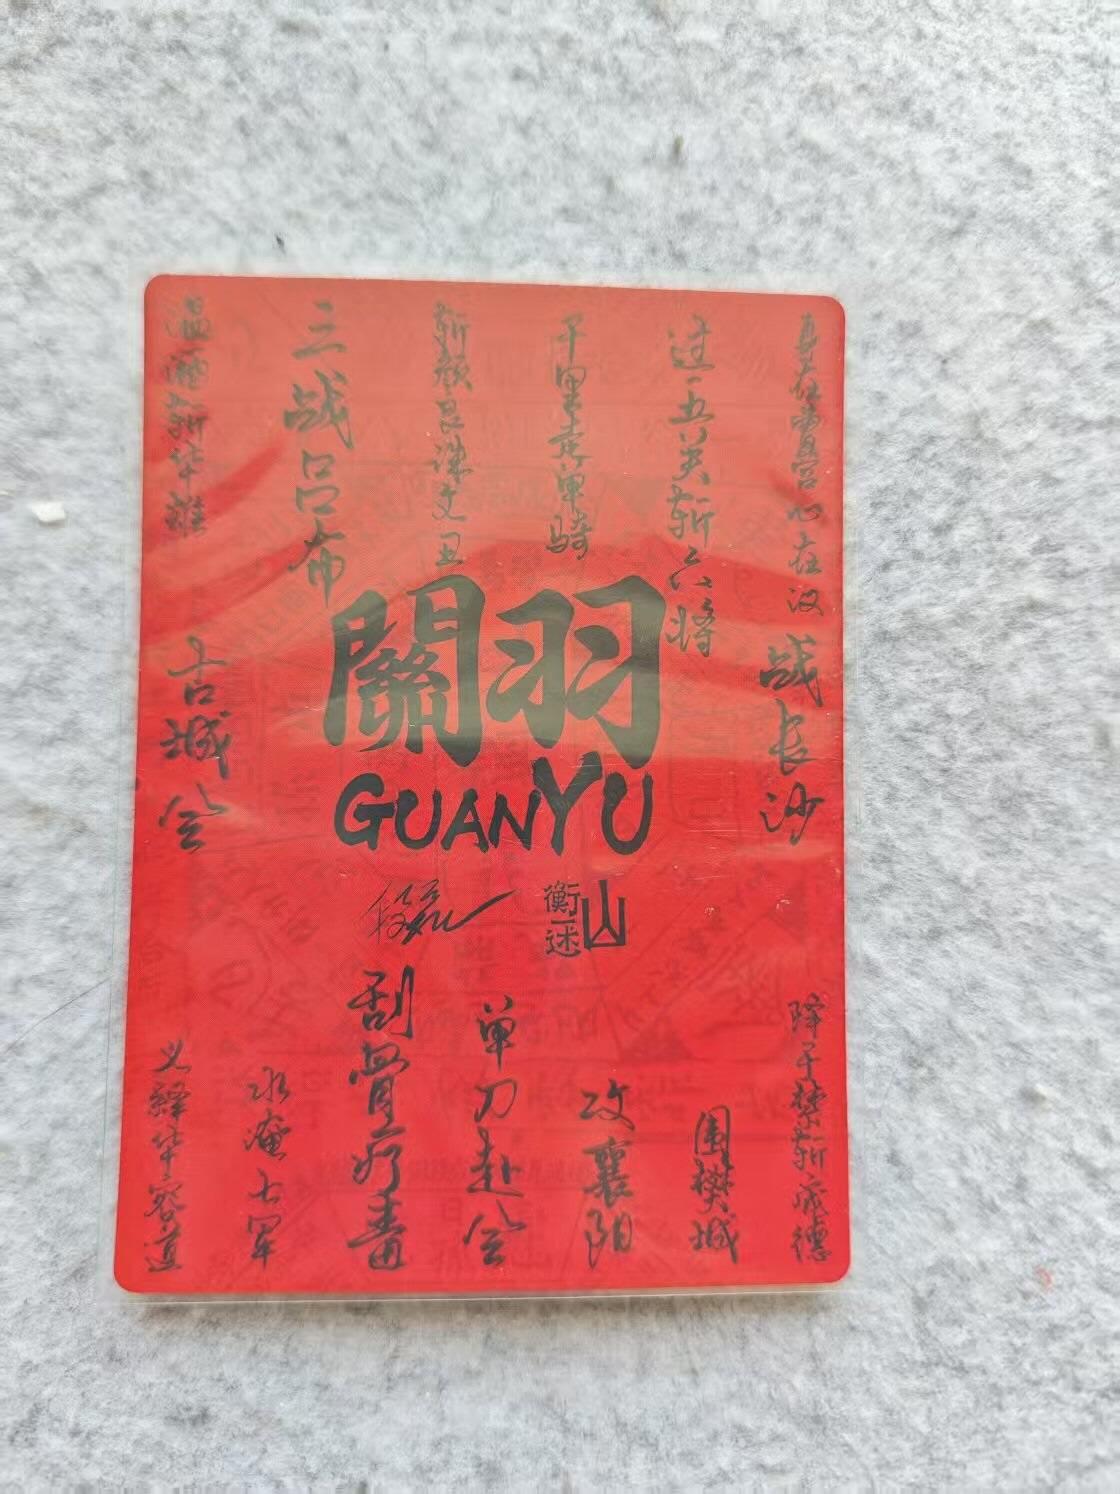 温酒斩华雄
三战吕布
斩颜良诛文丑
千里走单骑
过五关斩六将
身在曹营心在汉
古城会
關羽
GUANYU
战长沙
衡山
一述
义释华容道
水淹七军
刮骨疗毒
单刀赴会
攻襄阳
围樊城
降于禁斩庞德